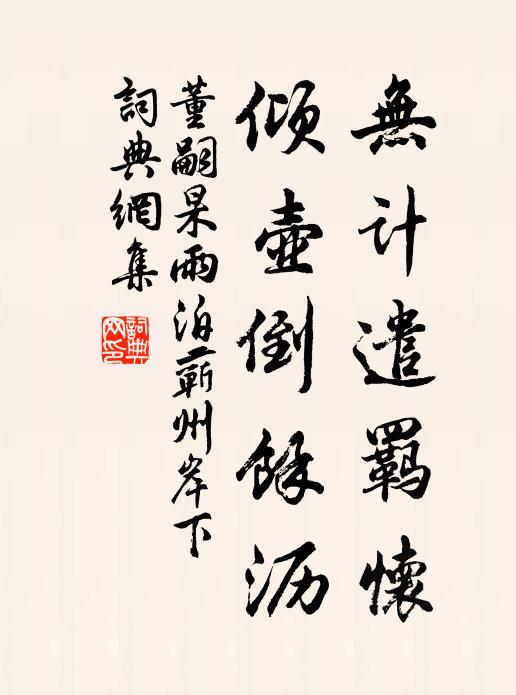 無计遣羁懷
倾壺倒餘沥
董嗣杲雨泊蕲州岸下
詞典網集
詞典網印